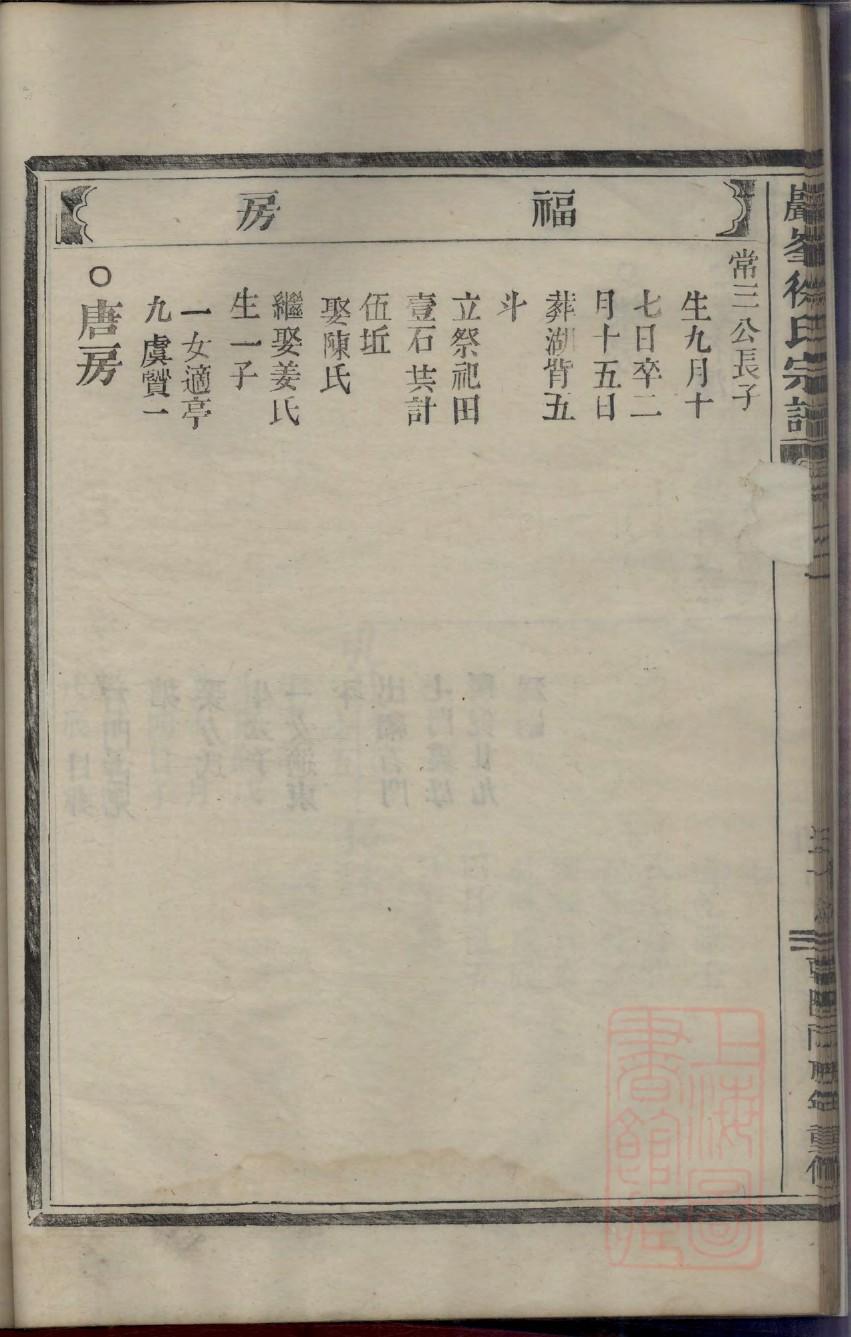 巖峯徐氏宗譜
福房
常三公長子
生九月十
七日卒二
月十五日
葬湖背五
斗
立祭祀田
壹石共計
伍坵
娶陳氏
繼娶姜氏
生一子
一女適亭
九虞贊一
○唐房
上海圖
書館藏